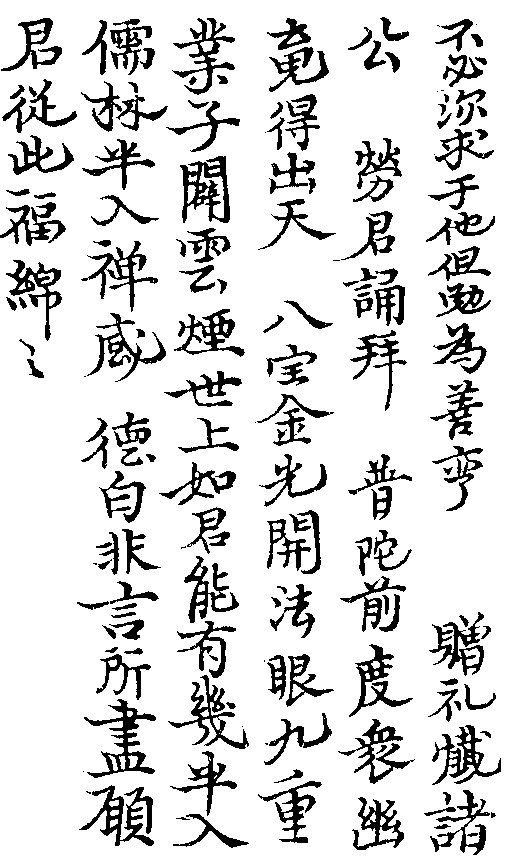 不必深求于他但勉為善 贈礼懺諸
公 勞君誦拜 普陀前度衆幽
寃得出天 八宝金光開法眼九重
業子闢雲煙世上如君能有幾半入
儒林半入禅感 德自非言所盡願
君從此福綿〻